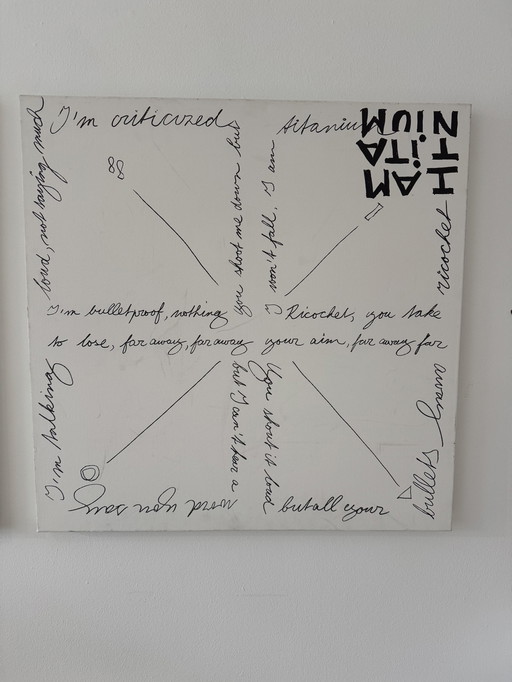 I'm criticized
titanium
AM
TiTA
NIUM
loud, not saying much
you shoot me down but
I won't fall. I am
ricochet
I'm bulletproof, nothing
to lose, far away, far away
Ricochet, you take
your aim, far away far
away
I'm talking
but I can't hear a
word you say
You shout it loud
but all your
bullets